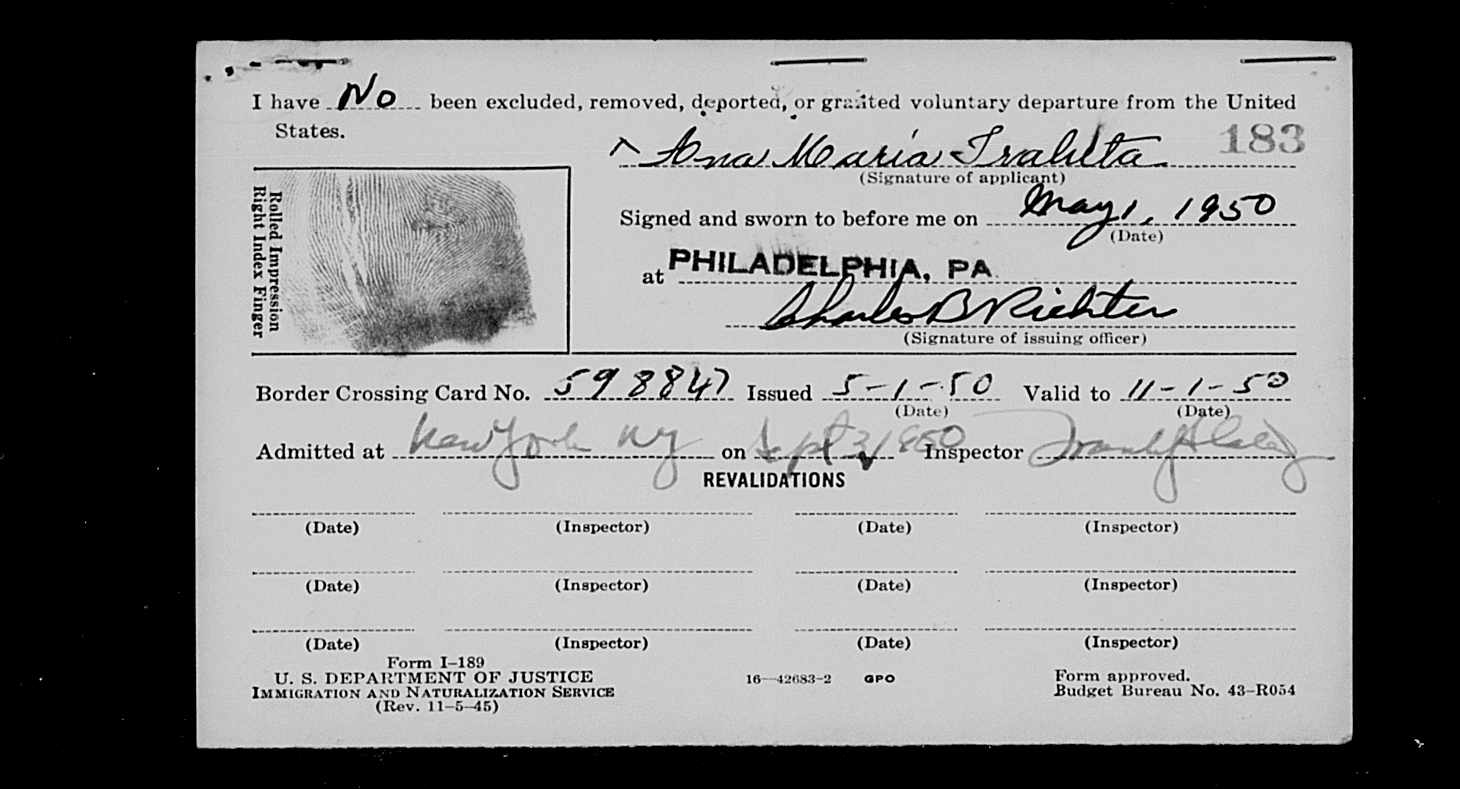 I have No been excluded, removed, deported, or granted voluntary departure from the United
States.
183
Ana María
(Signature of applicant)
Rolled Impression
Right Index Finger
Signed and sworn to before me on May 1, 1950
(Date)
at PHILADELPHIA, PA.
Charles B Richter
(Signature of issuing officer)
Border Crossing Card No. 598847 Issued 5-1-50 Valid to 11-1-50
(Date) (Date)
Admitted at New York NY on Sept 3, 1950 Inspector
REVALIDATIONS
(Date) (Inspector) (Date) (Inspector)
(Date) (Inspector) (Date) (Inspector)
(Date) (Inspector) (Date) (Inspector)
Form I-189
U. S. DEPARTMENT OF JUSTICE
IMMIGRATION AND NATURALIZATION SERVICE
(Rev. 11-5-45)
16—42683-2 GPO
Form approved.
Budget Bureau No. 43-R054